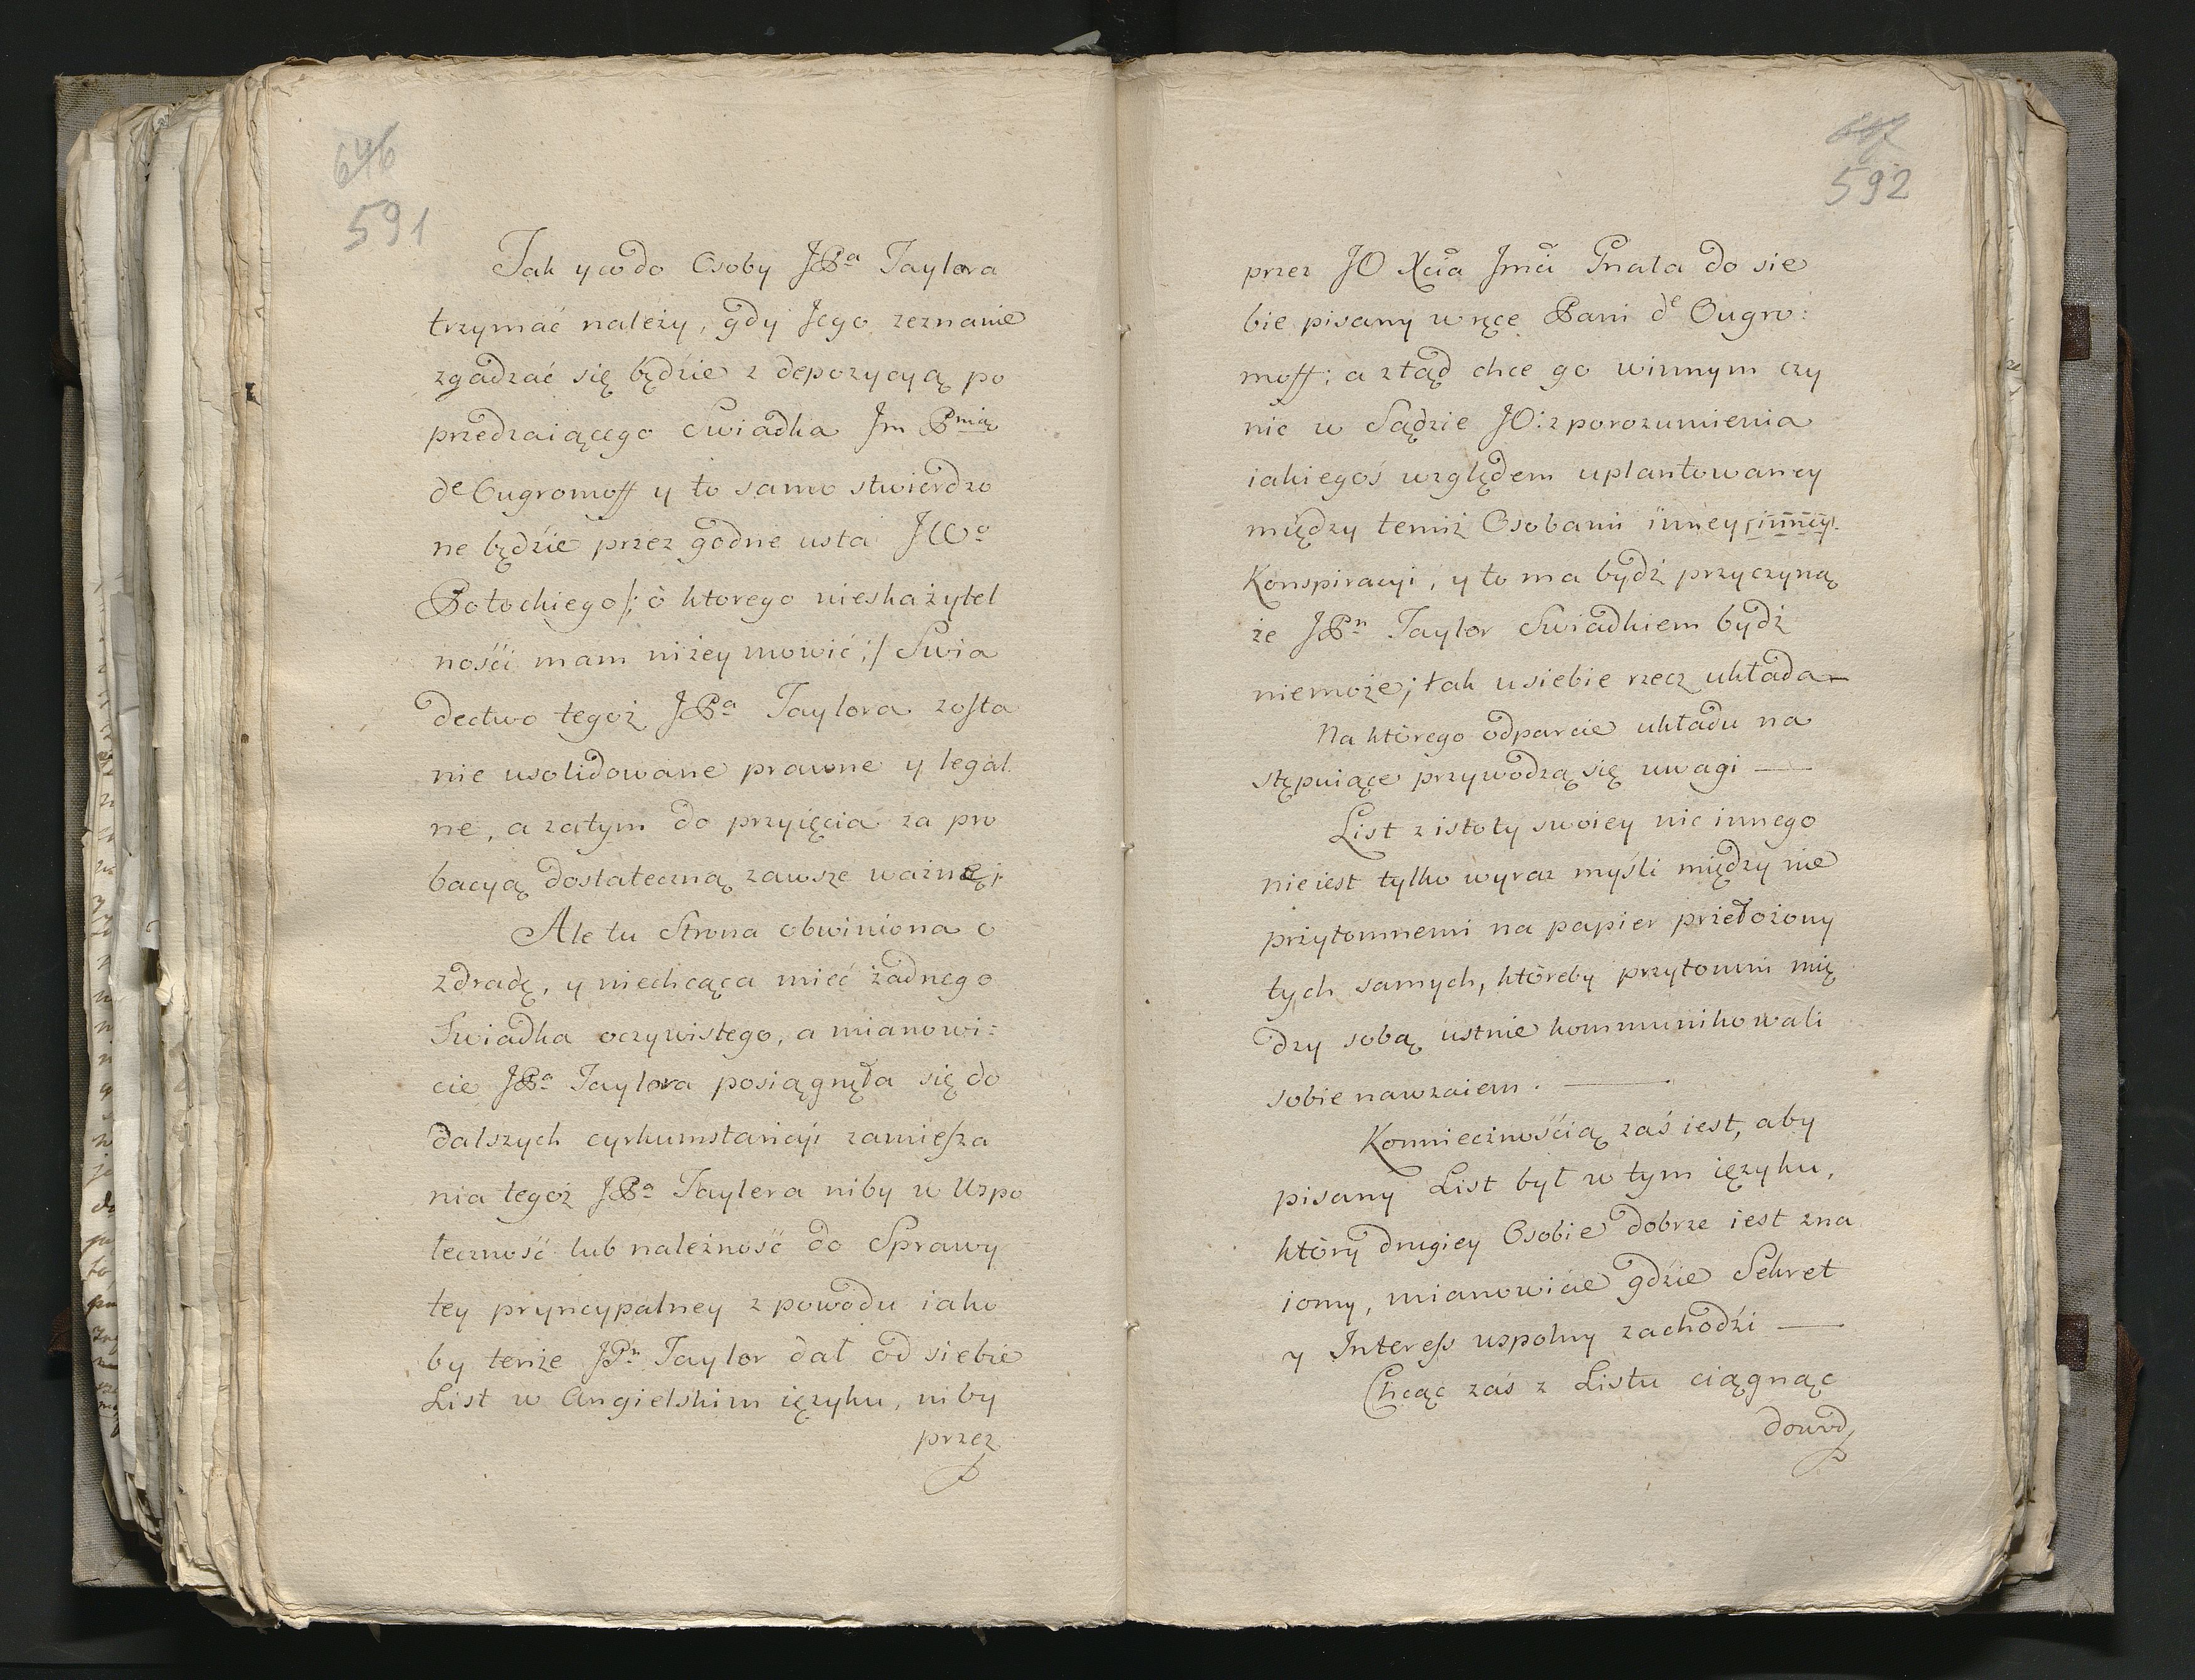 646
591
Tak y co do Osoby JPa Taylora
trzymać należy, gdy Jego zeznanie
zgadzać się będzie z depozycyą po
przedzaiącego Swiadka Jm Pnią
de Ougromoff y to samo stwierdzo
ne będzie przez godne usta JWo
Potockiego /: ò ktorego nieskażytel
nośći mam niżey mowić :/ Swia
dectwo tegoż JPa Taylora zosta
nie usolidowane prawne y legal.
ne, a zatym do przyięcia za pro
bacyą dostateczną zawsze ważnę.
Ale tu Strona obwiniona o
zdradę, y niechcąca mieć żadnego
Swiadka oczywistego, a mianowi=
cie JPa Taylora posiągnęła się do
dalszych cyrkumstancyi zamiesza
nia tegoż JPa Taylera niby w Uspo
łeczność lub należność do Sprawy
tey pryncypalney z powodu iako
by tenże JPn Taylor dał od siebie
List w Angielskim ięzyku, niby
przez
592
przez JO Xcia Jmci Gnała do sie
bie pisany w ręce Pani de Ougro:
moff; a ztąd chce go winnym czy
nic w Sądzie JO: z porozumienia
iakiegoś względem uplantowaney
między temiż Osobami inney
Konspiracyi, y to ma bydź przyczyną
że JPn Taylor Swiadkiem bydź
niemoże; tak u siebie rzecz układa —
Na którego odparcie układu na
stępuiące przywodzą się uwagi —
List z istoty swoiey nic innego
nieiest tylko wyraz myśli między nie
przytomnemi na papier przełożony
tych samych, któreby przytomni mię
dzy sobą ustnie kommunikowali
sobie nawzaiem. —
Konniecznośćią zaś iest, aby
pisany List był w tym ięzyku,
który drugiey Osobie dobrze iest zna
iomy, mianowicie gdzie Sekret
y Interess uspolny zachodźi —
Chcąc zaś z Listu ciągnąc
dowod